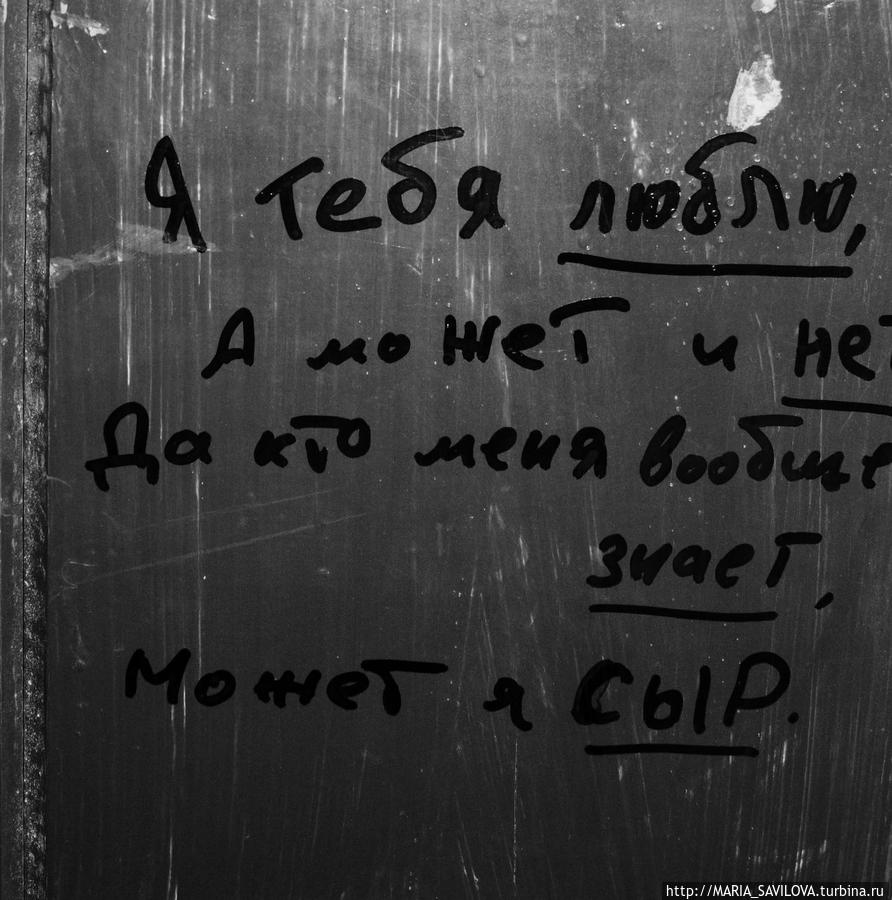 Я тебя люблю,
А может и нет
Да кто меня вообще
знает,
Может я СЫР.
http://MARIA_SAVILOVA.turbina.ru